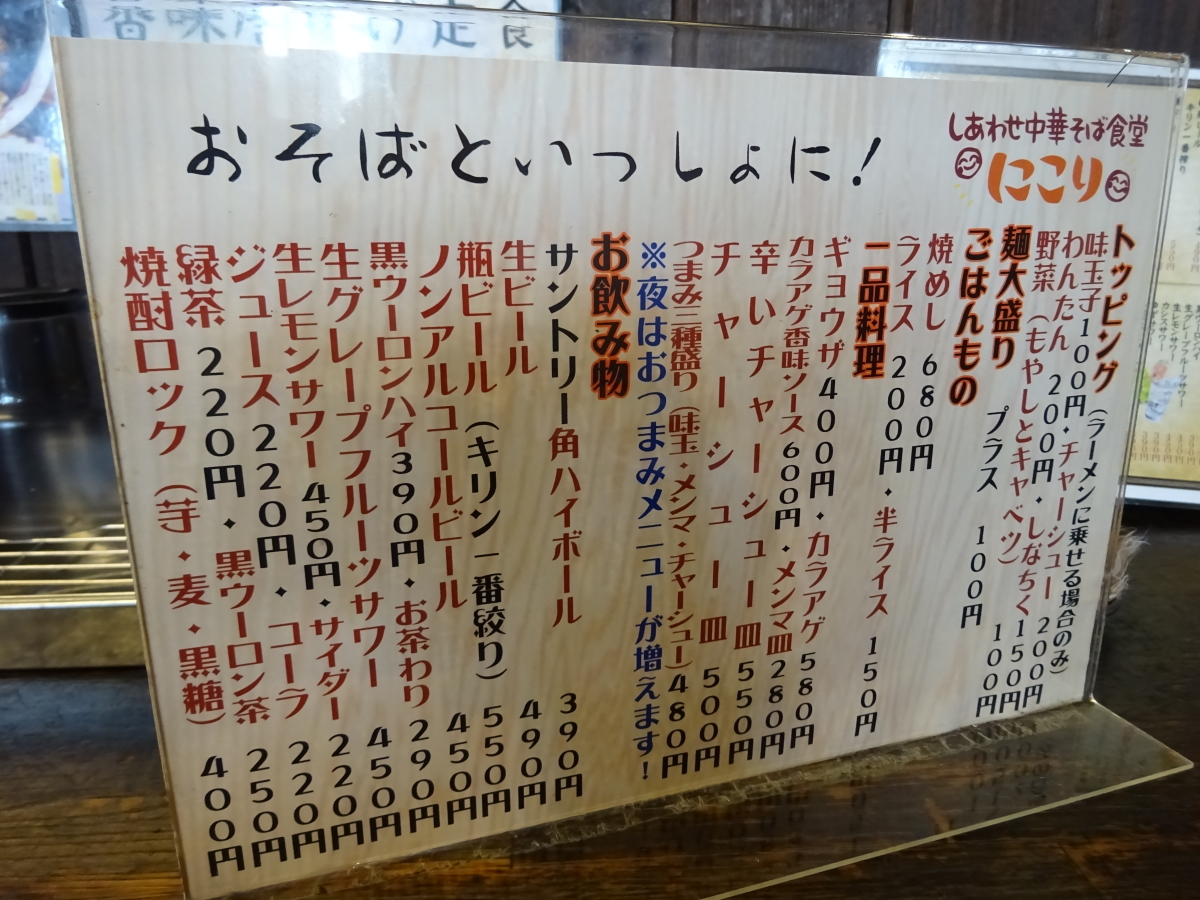 おそばといっしょに!
しあわせ中華そば食堂
にこり
トッピング (ラーメンに乗せる場合のみ)
味玉子100円・チャーシュー 200円
わんたん 200円・しなちく150円
野菜(もやしとキャベツ) 100円
麺大盛り プラス 100円
ごはんもの
焼めし 680円
ライス 200円・半ライス 150円
一品料理
ギョウザ400円・カラアゲ580円
カラアゲ香味ソース600円・メンマ皿280円
辛いチャーシュー皿550円
チャーシュー皿 500円
つまみ三種盛り(味玉・メンマ・チャーシュー)480円
※夜はおつまみメニューが増えます!
お飲み物
サントリー角ハイボール 390円
生ビール 490円
瓶ビール(キリン一番絞り)550円
ノンアルコールビール 450円
黒ウーロンハイ390円・お茶わり290円
生グレープフルーツサワー 450円
生レモンサワー 450円・サイダー220円
ジュース 220円・コーラ 220円
緑茶 220円・黒ウーロン茶 250円
焼酎ロック(芋・麦・黒糖) 400円